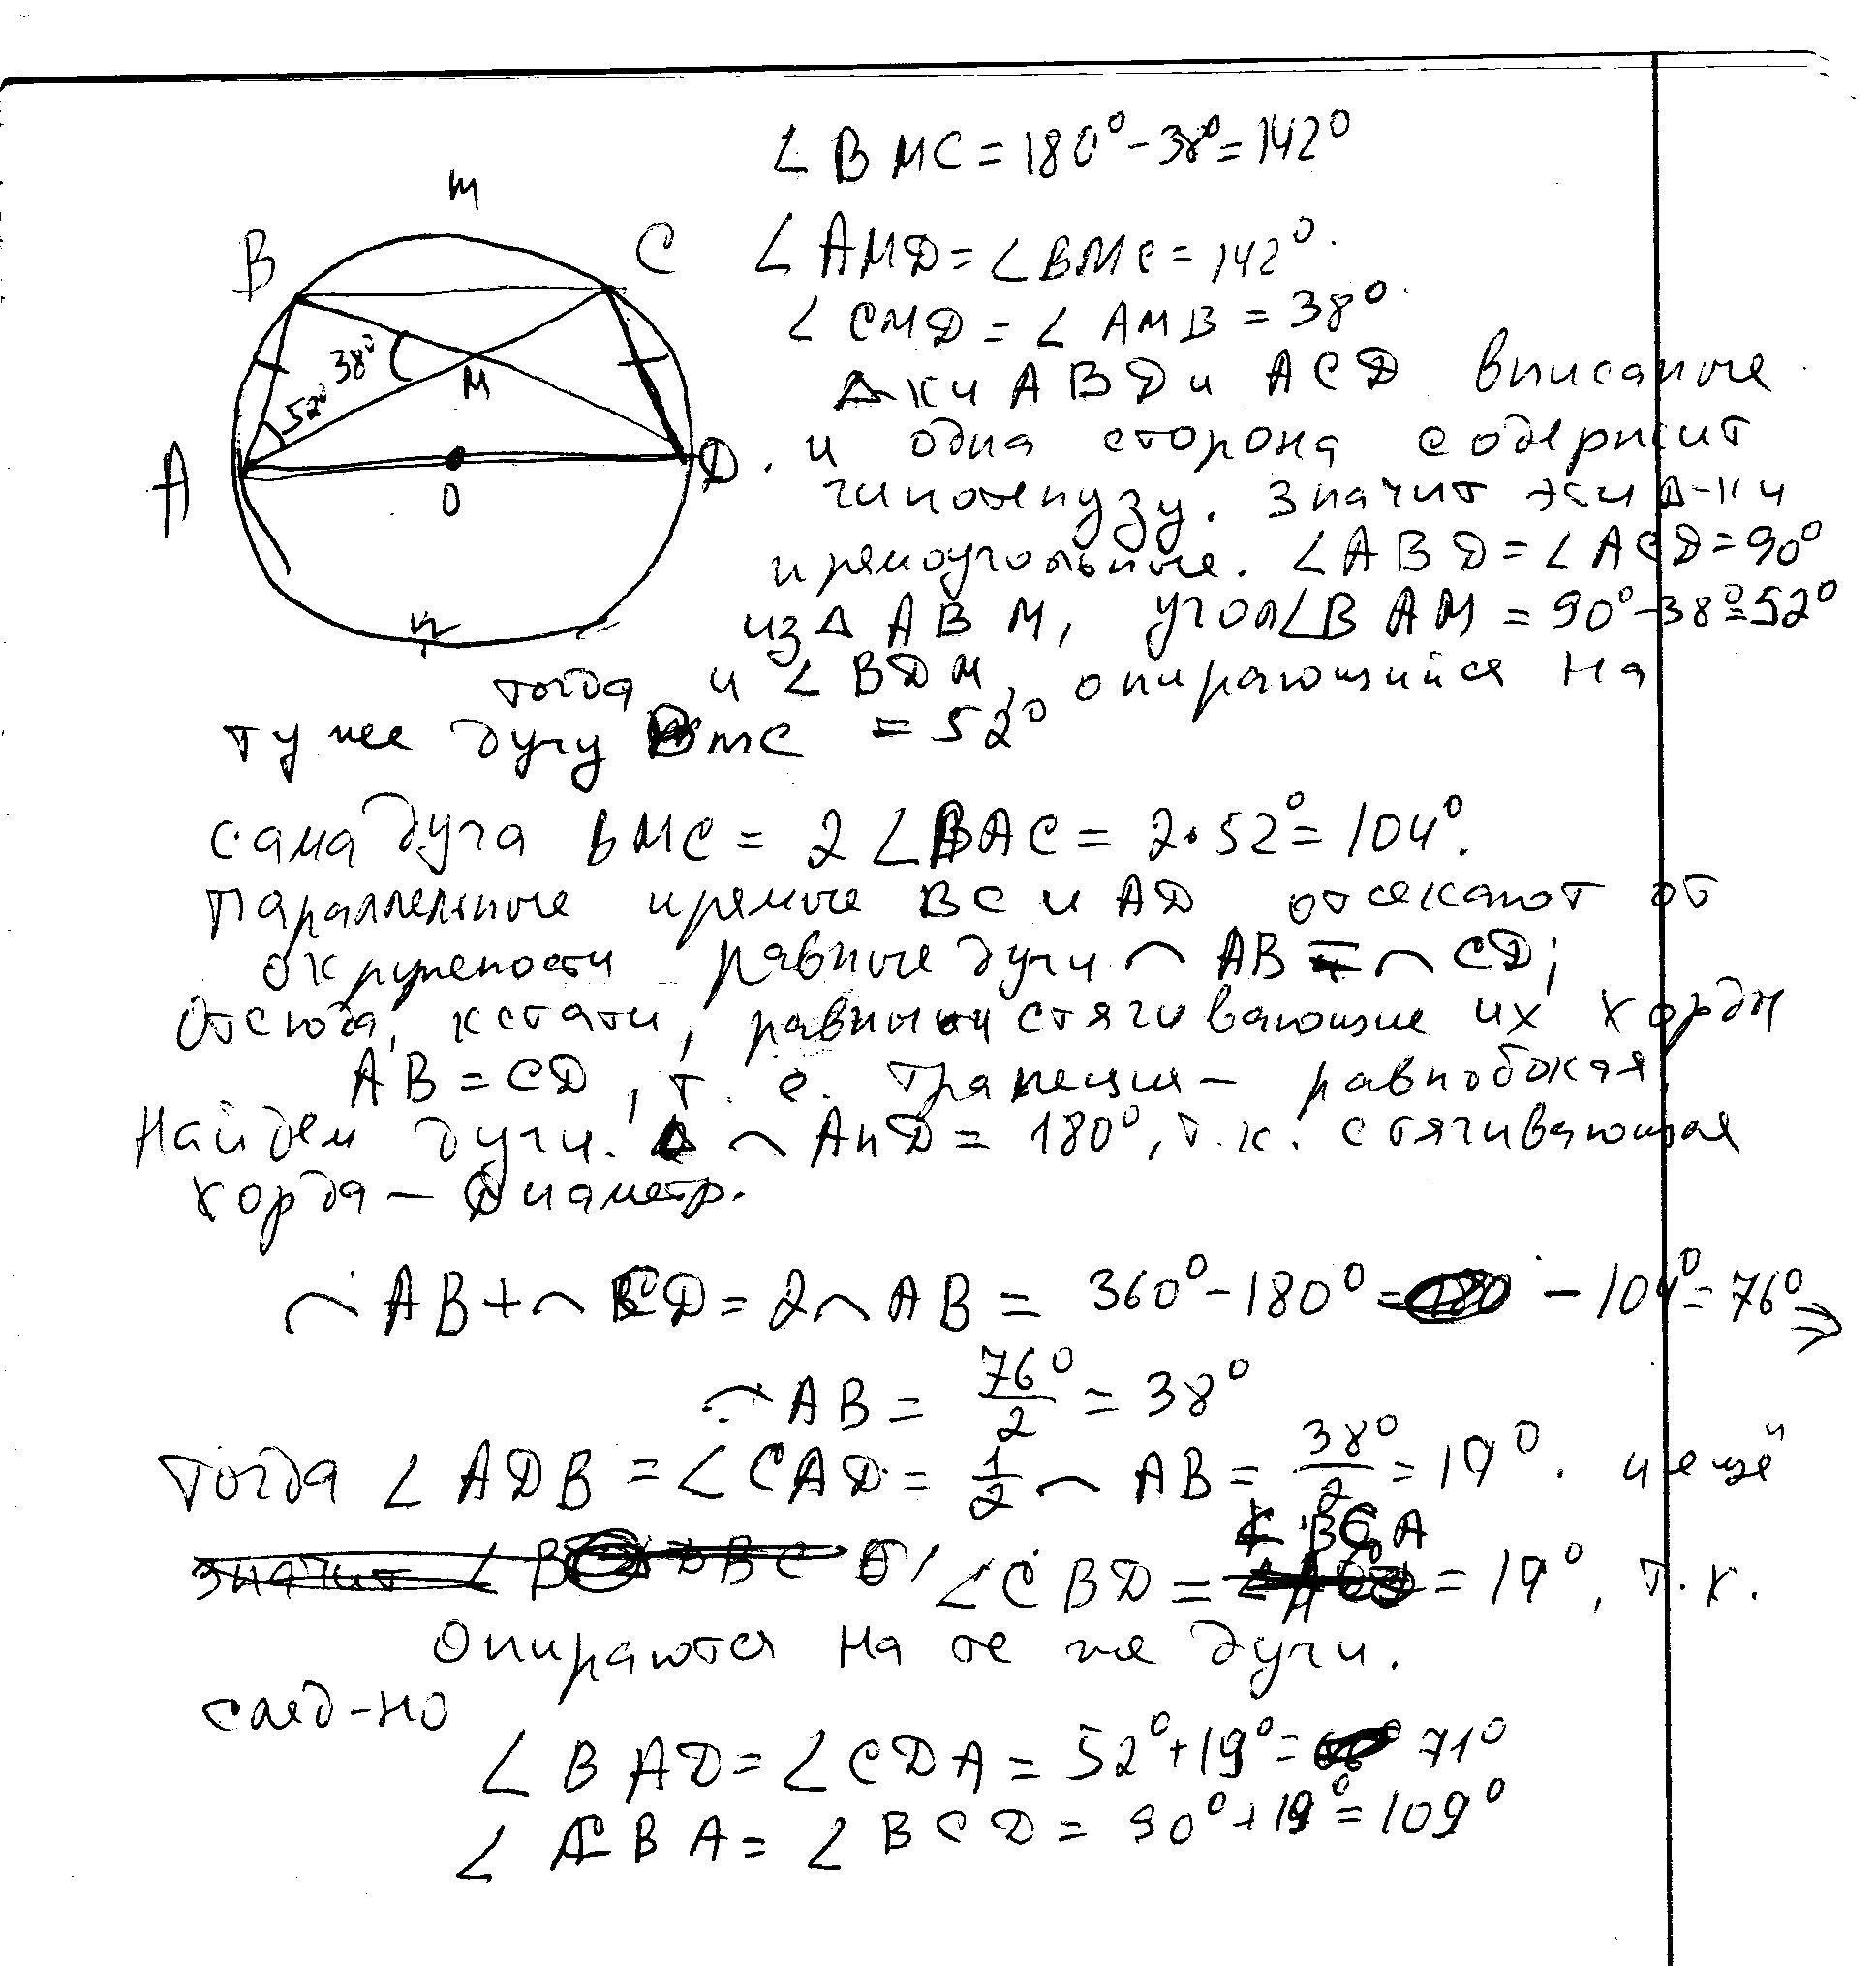 ∠BMC = 180° - 38° = 142°
m
B
C
∠AMD = ∠BMC = 142°.
∠CMD = ∠AMB = 38°.
38°
52°
M
A
D
O
n
Δки ABD и ACD вписаные
. и одна сторона содержит
гипотенузу. Значит эти Δ-ки
прямоугольные. ∠ABD = ∠ACD = 90°
из Δ ABM, угол ∠BAM = 90° - 38° = 52°
тогда и ∠BDM, опирающийся на
ту же дугу BmC = 52°
сама дуга BMC = 2∠BAC = 2·52° = 104°.
Параллельные прямые BC и AD отсекают от
окружности равные дуги ⌒AB = ⌒CD;
Отсюда, кстати, равны и стягивающие их хорды
AB = CD, т. е. Трапеция – равнобокая
Найдем дуги. ⌒AnD = 180°, т.к. стягивающая
хорда – диаметр.
⌒AB + ⌒CD = 2⌒AB = 360° - 180° - 104° = 76° ⇒
⌒AB = 76°/2 = 38°
Тогда ∠ADB = ∠CAD = 1/2 ⌒AB = 38°/2 = 19°. и ещё
∠CBD = ∠BCA = 19°, т.к.
Опираются на те же дуги.
след-но
∠BAD = ∠CDA = 52° + 19° = 71°
∠CBA = ∠BCD = 90° + 19° = 109°